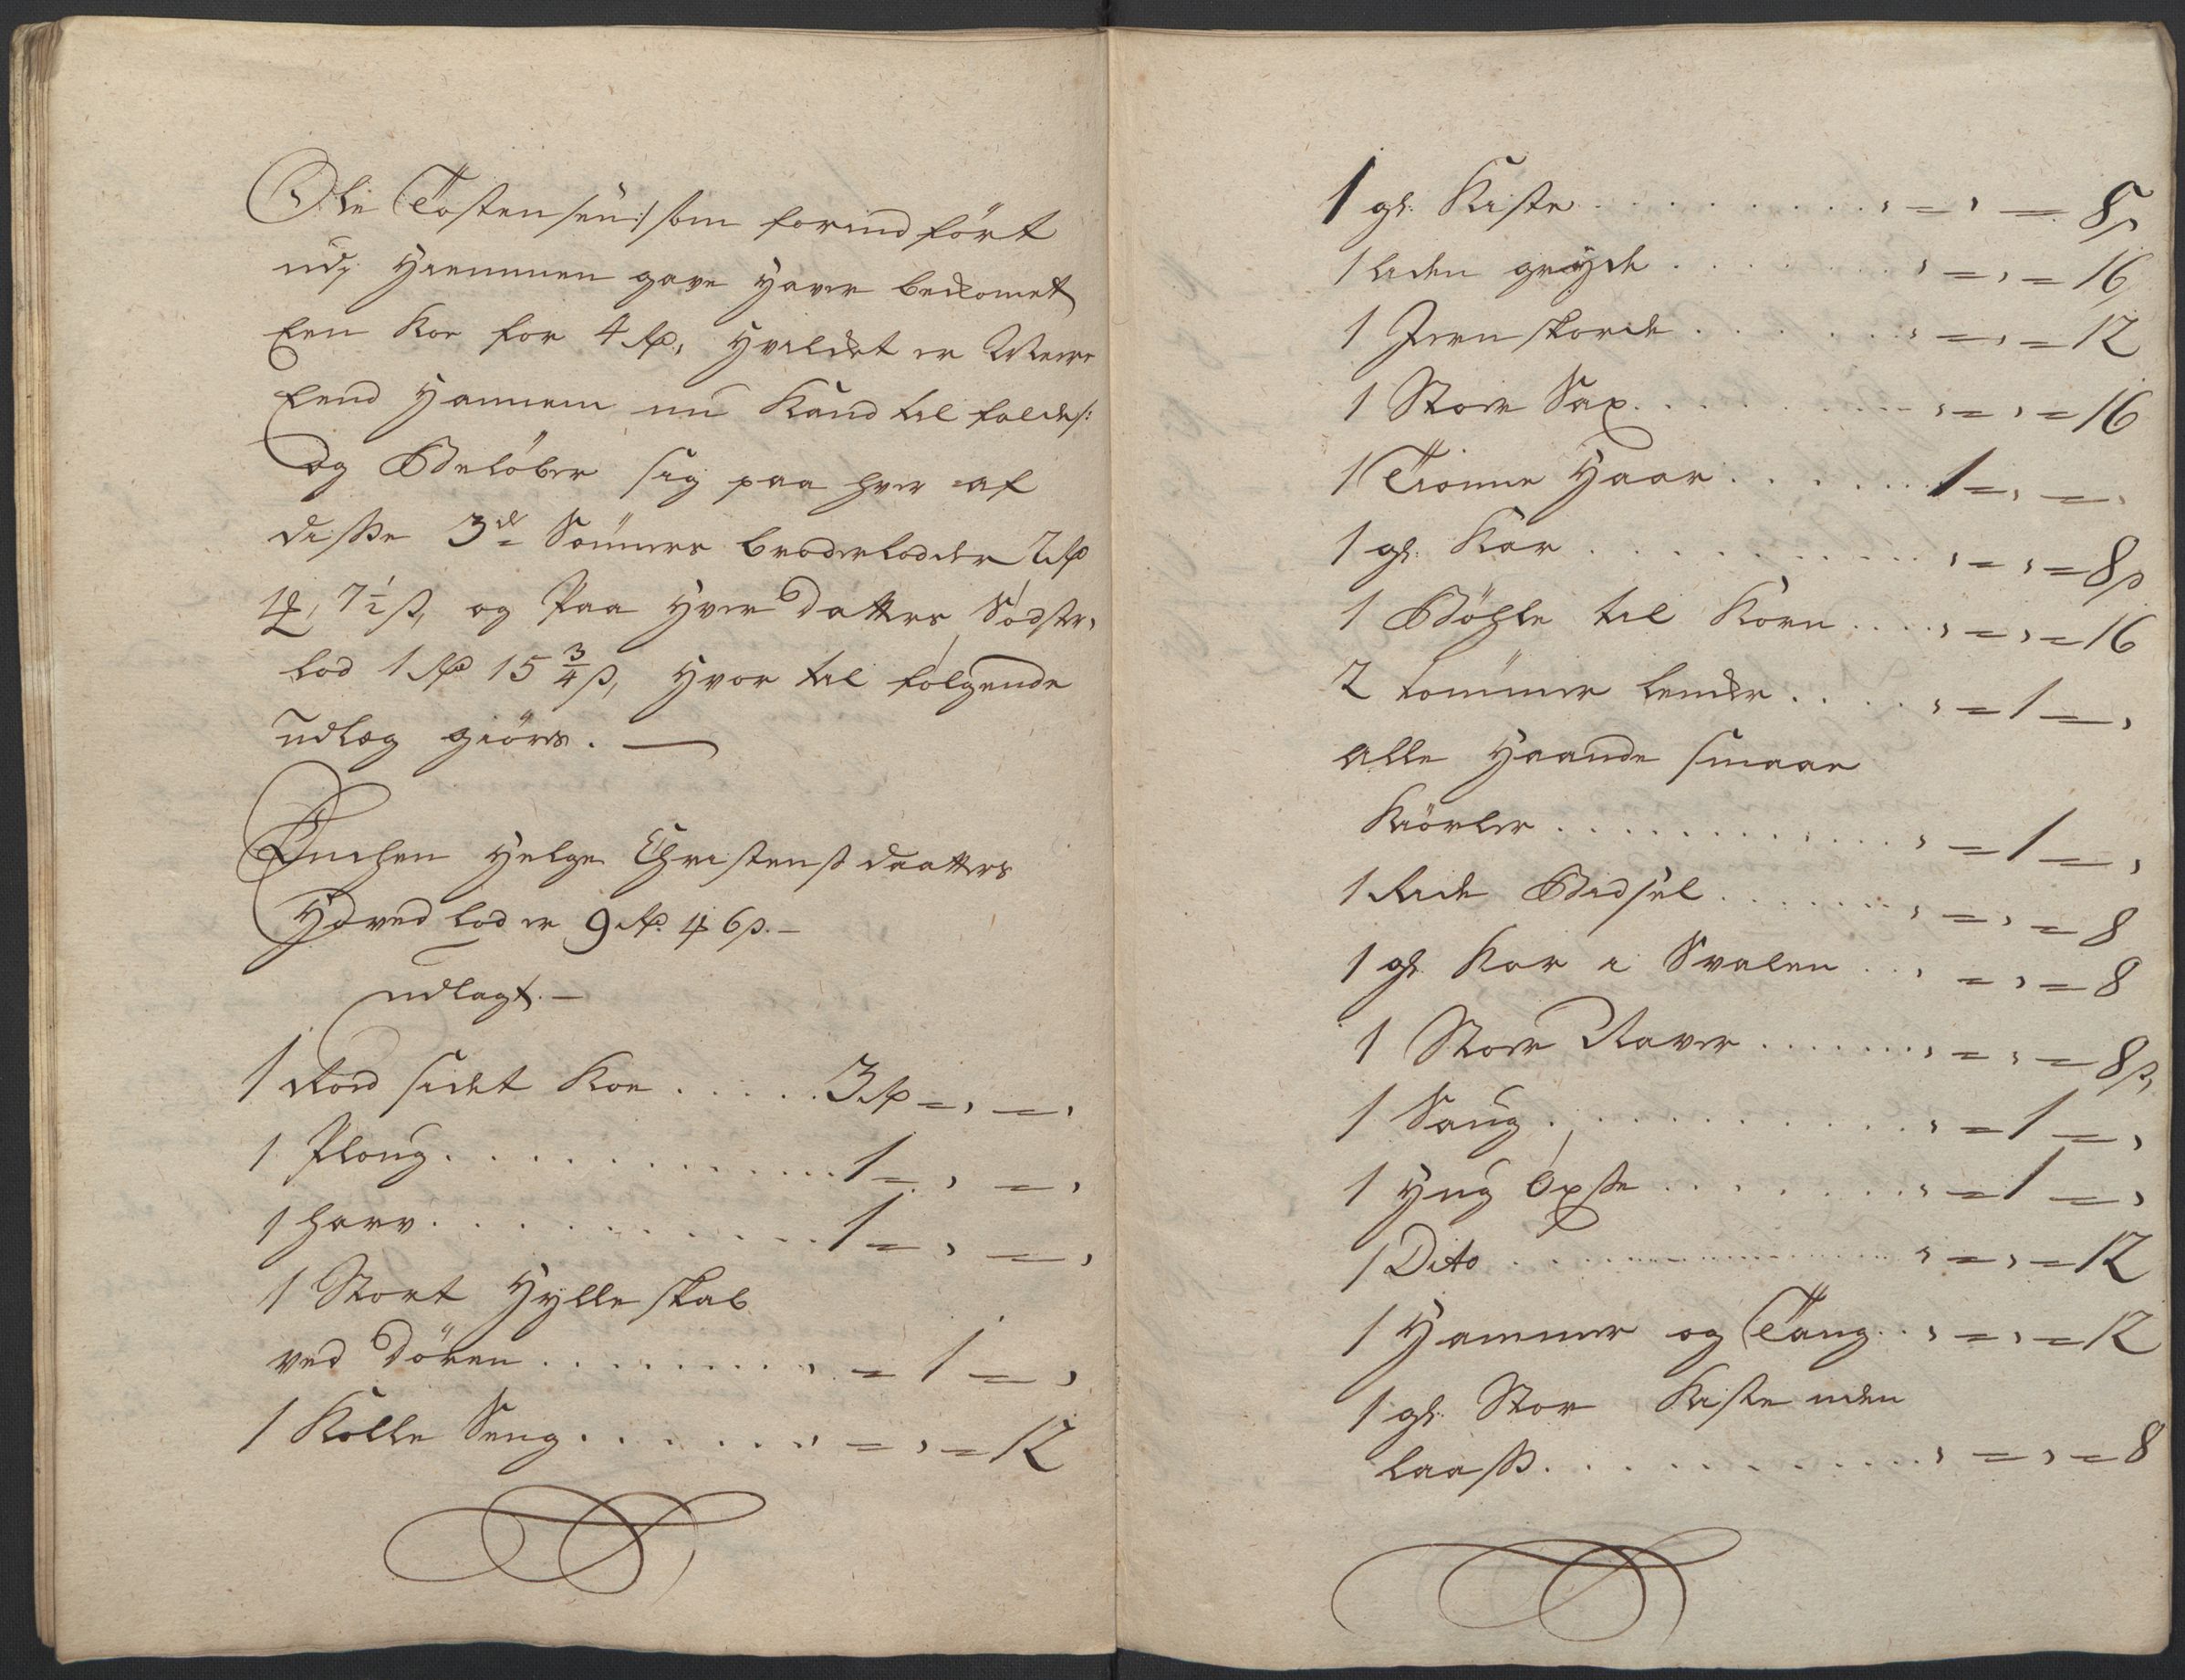 Ole Tostensen :/ som forind fört
udj Hiemmen gave haver bekomet
Een Koe for 4 Rd, hvilket er Meere
End hannem nu Kand til falde /:
og Beløber sig paa hver af
diſse 3de Sönners broderlodder 2 Rd
1 ℔, 7½ ß, og Paa hver Datters Södster,
lod 1 Rd 15¾ ß, hvor til fölgende
udlæg giöris. —
Enchen Helge Christensdaatters
Hoved lod er 9 Rd ℔ 6 ß. —
udlagt. —
1 Rød sidet Koe . . . . . 3 Rd = , = ,
1 Ploug . . . . . . . . . 1 = , = ,
1 harv . . . . . . . . . 1 = , = ,
1 Stort Hylle skab
ved Dören . . . . . . . . , = 1 = ,
1 Kolle Seng . . . . . . . , = , = 12
1 gl. Kiste . . . . . . . . , = , = 8 ß
1 liden gryde . . . . . . , = , = 16
1 Jernskorde . . . . . . , = , = 12
1 Stoer Sax . . . . . . . , = , = 16
1 Tionne Haar . . . . . . 1 = , = ,
1 gl. Kar . . . . . . . . , = , = 8 ß
1 Böhle til Korn . . . . , = , = 16
2 tommer lender . . . . . , = 1 = ,
alle Haande smaae
Kiörler . . . . . . . . . , = 1 = ,
1 Ride Bidsel . . . . . . , = , = 8
1 gl. Kar i Svalen . . . , = , = 8
1 Stoer Naver . . . . . . , = , = 8 ß,
1 Saug . . . . . . . . . , = 1 = ,
1 Hug Öxse . . . . . . . , = 1 = ,
1 Dito . . . . . . . . . , = , = 12
1 Hammer og Tang . . . , = , = 12
1 gl. Stor Kiste uden
laaß . . . . . . . . . . , = , = 8